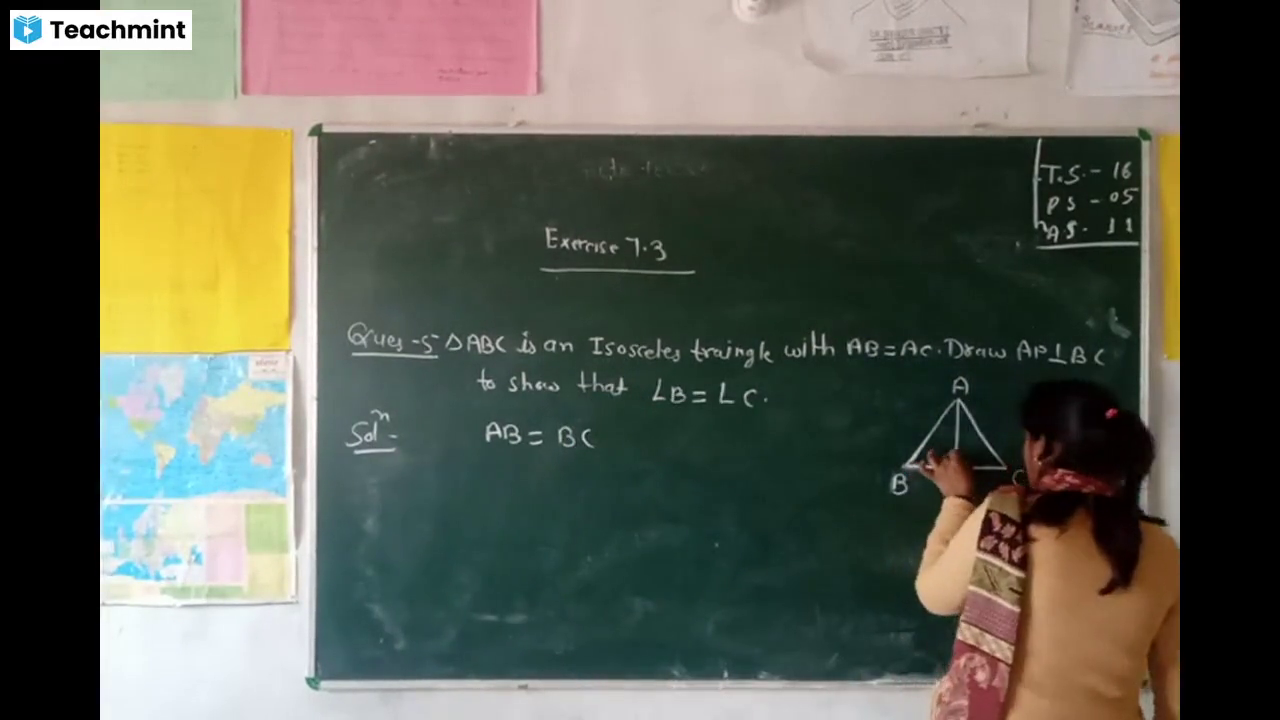 Teachmint
T.S. - 16
P S - 05
A S. 11
Exercise 7.3
Ques - 5 △ABC is an Isosceles traingle with AB = AC. Draw AP⊥BC
to show that ∠B = ∠C.
Solⁿ - AB = BC
A
B C